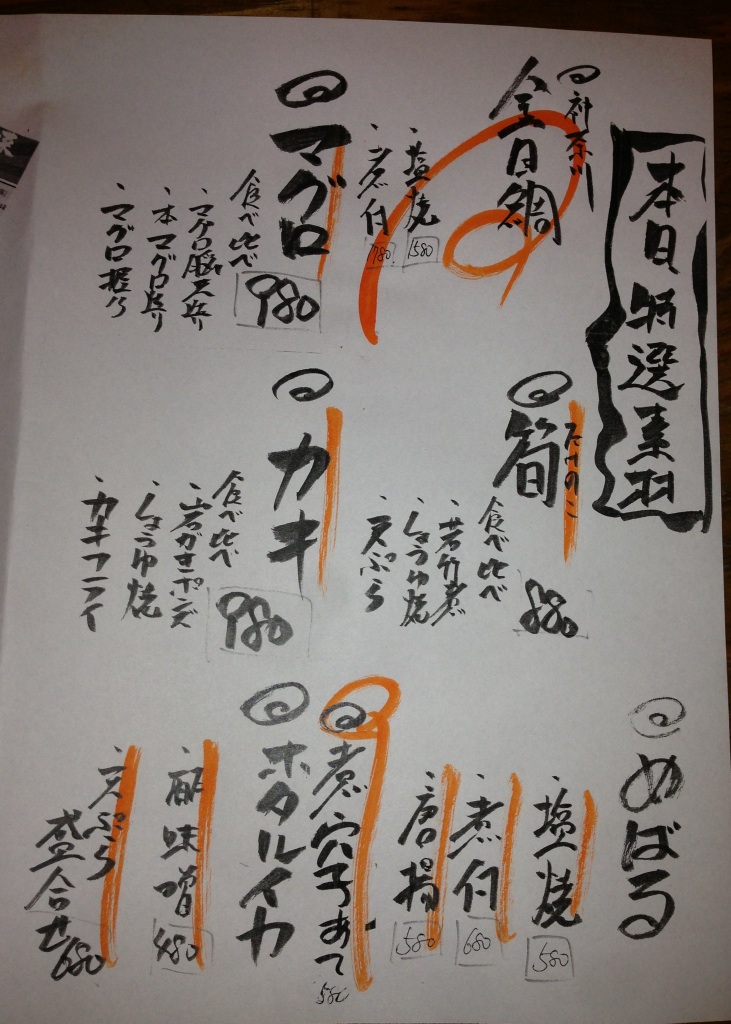 本日特選素材
神奈川
金目鯛
・塩焼 1580
・煮付 1780
マグロ
食べ比べ 980
・マグロ脳天炙り
・本マグロ炙り
・マグロ握り
たけのこ
筍
食べ比べ 880
・若竹煮
・しょうゆ焼
・天ぷら
カキ
食べ比べ 980
・岩がきポン酢
・しょうゆ焼
・カキフライ
めばる
・塩焼 580
・煮付 680
・唐揚 580
煮穴子あて 580
ホタルイカ
・酢味噌 480
・天ぷら
盛合せ 680